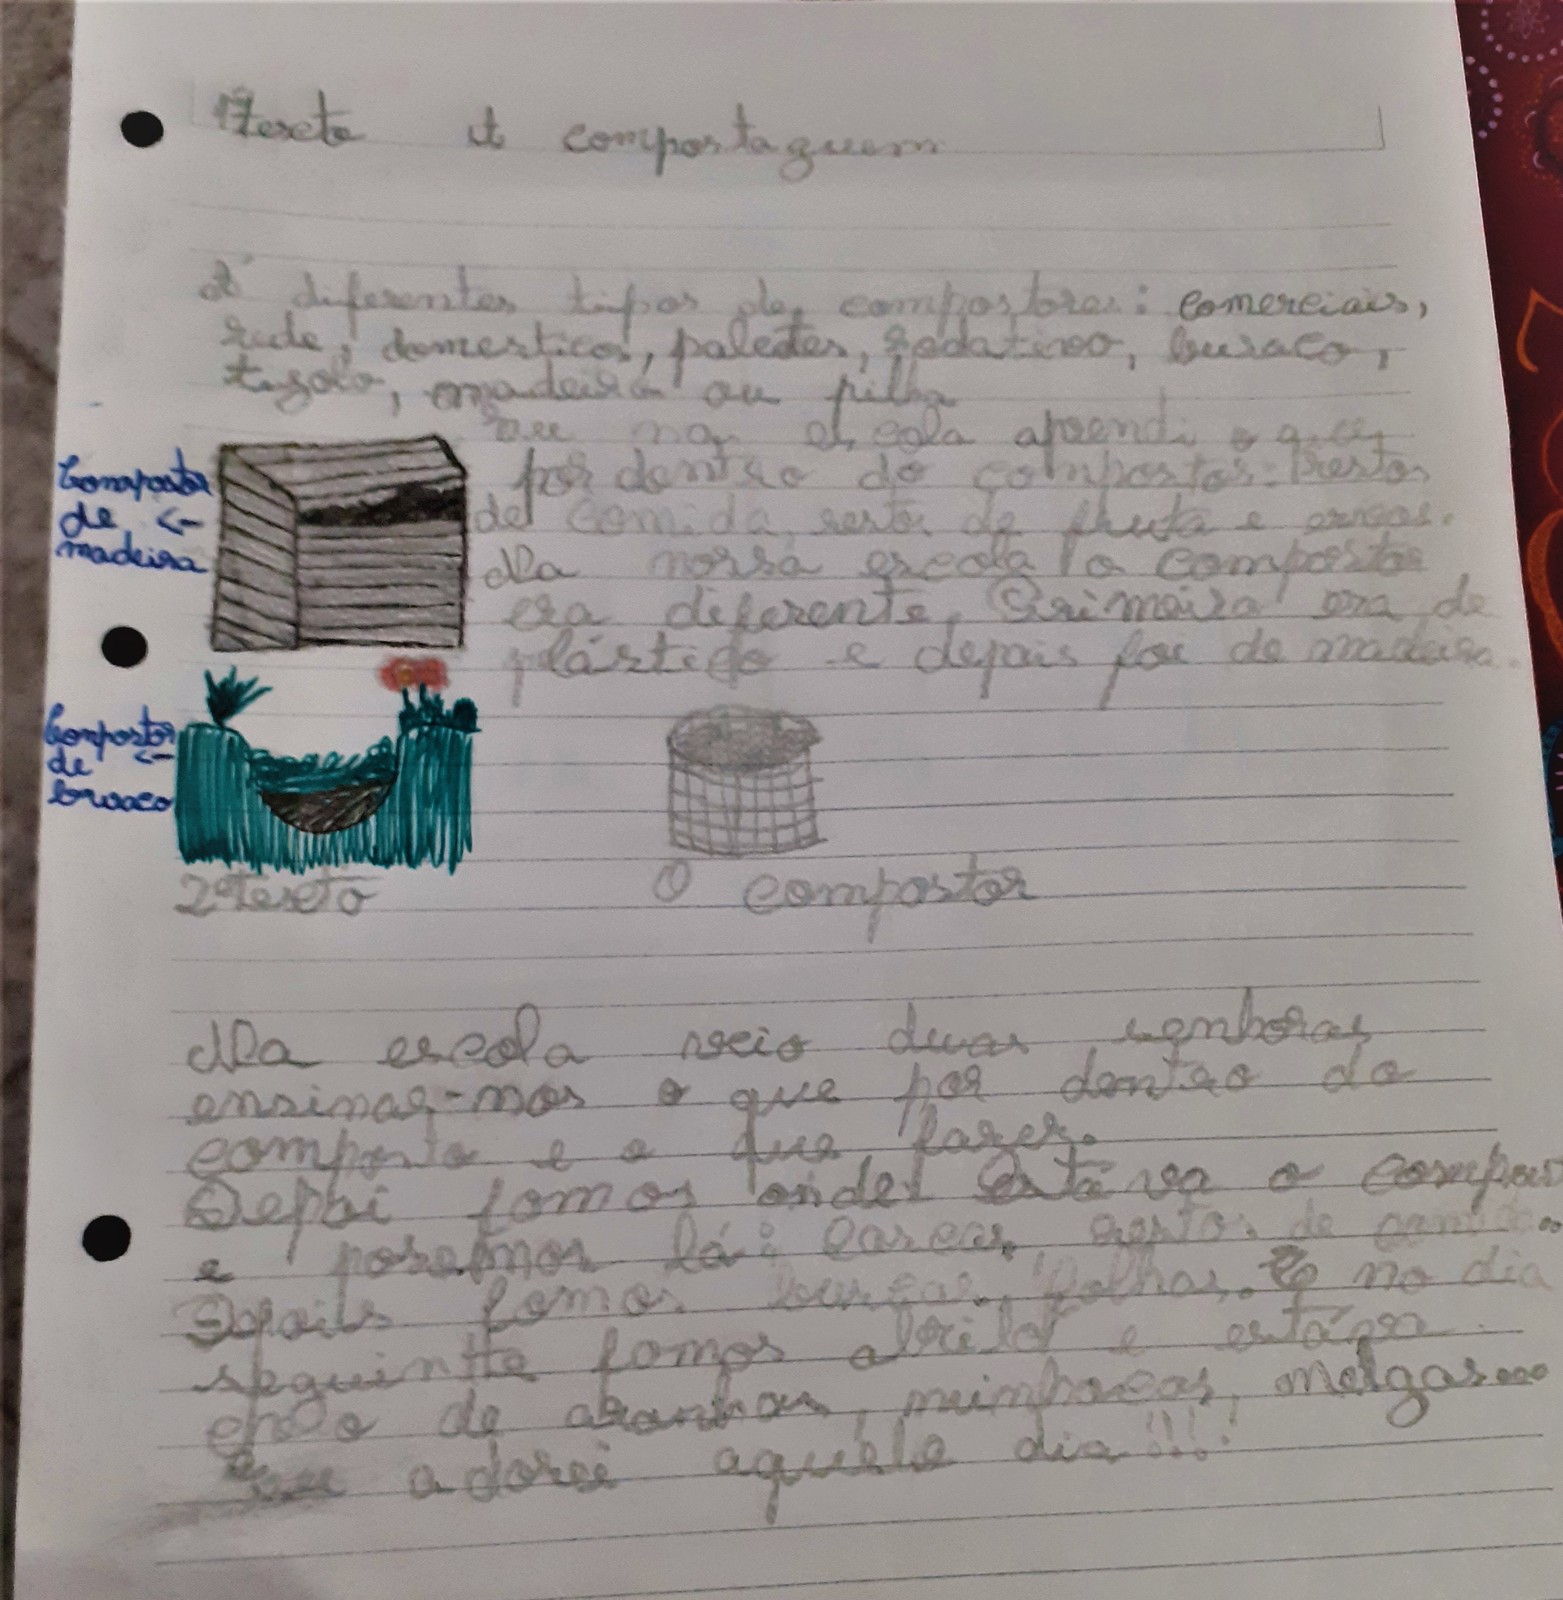 1º texto A compostaguem
Á diferentes tipos de compostores: comerciais,
rede, domesticos, paletes, rodativo, buraco,
tijolo, madeira ou pilha
Eu na escola aprendi o que
pôr dentro do compostor: restos
de comida, resto de fruta e
Na nossa escola o compostor
era diferente. Primeira era de
plástico e depois foi de madeira.
Compostor
de <-
madeira
Compostor
de <-
buraco
2º texto O compostor
Na escola veio duas senhoras
ensinar-nos o que por dentro do
composto e o que fazer.
Depoi fomos onde estáva o
e posemos lá: cascas, restos de
Depois fomos buscar folhas. E no dia
seguinte fomos abrilo e estáva
cheio de aranhas, minhocas, melgas...
Eu adorei aquele dia!!!!